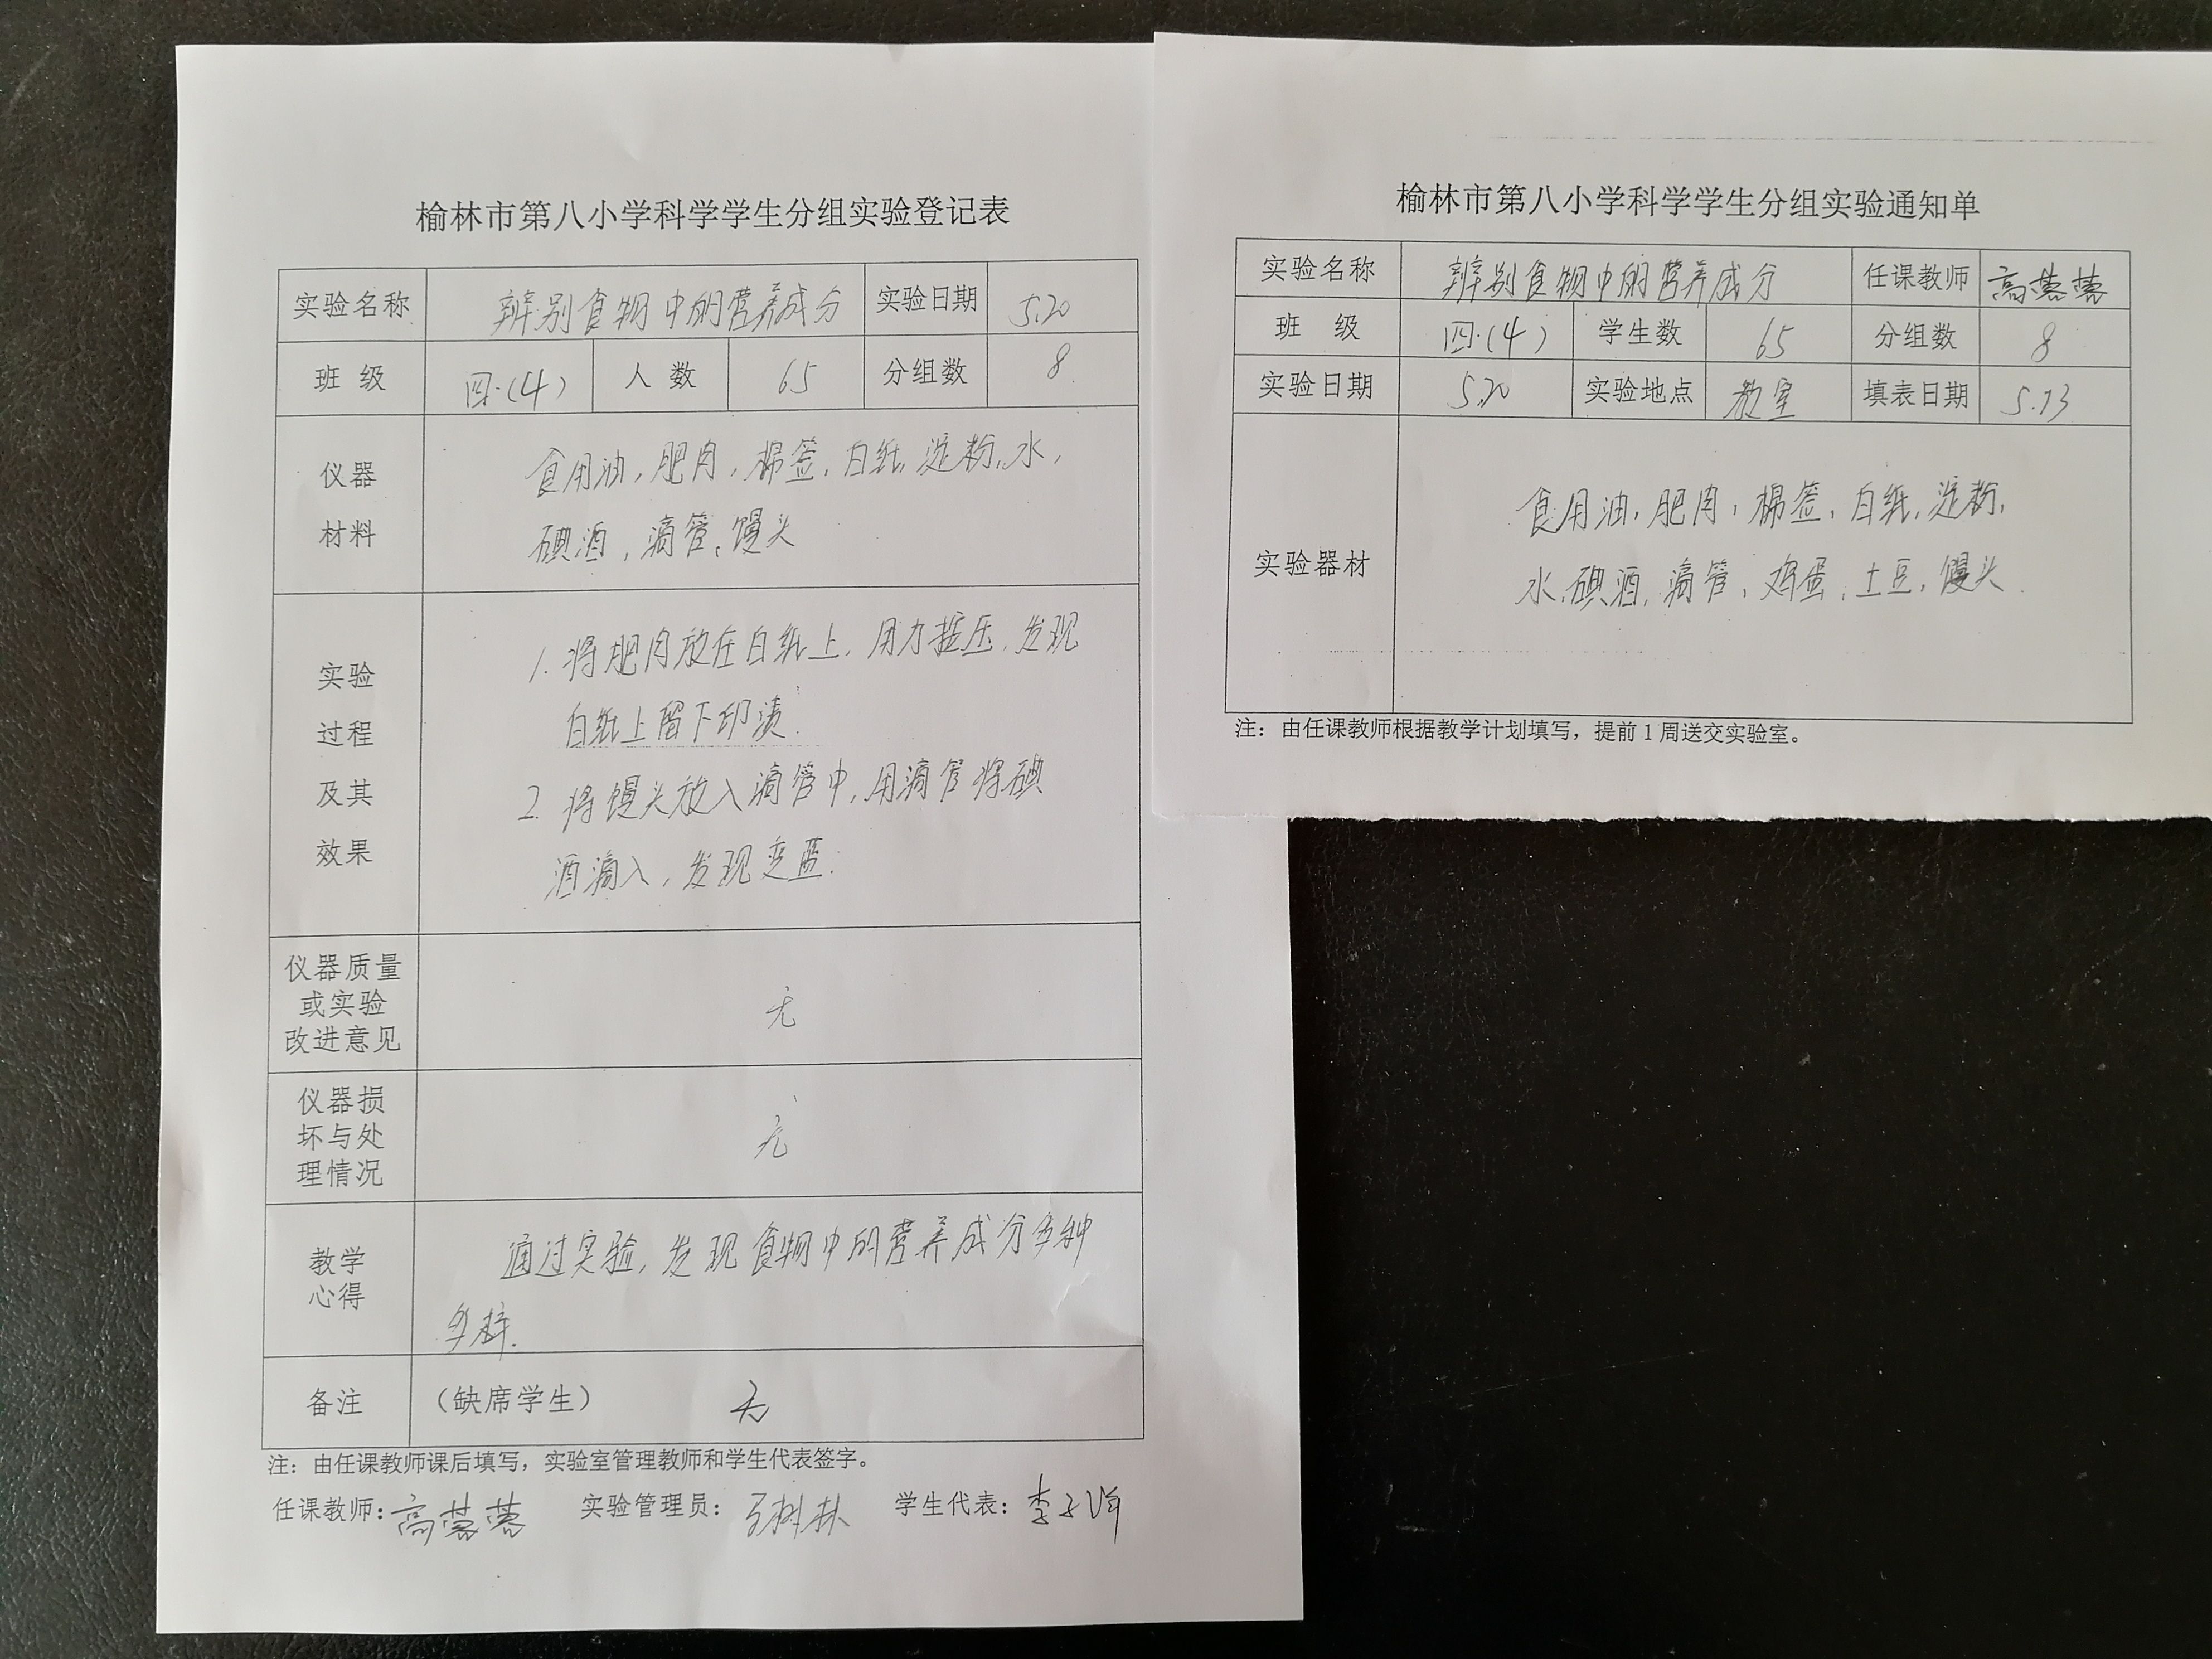 榆林市第八小学科学学生分组实验登记表
实验名称 辨别食物中的营养成分 实验日期 5.20
班 级 四.(4) 人 数 65 分组数 8
仪器
材料
食用油,肥肉,棉签,白纸,淀粉,水,
碘酒,滴管,馒头
实验
过程
及其
效果
1. 将肥肉放在白纸上,用力挤压,发现
白纸上留下印渍.
2. 将馒头放入滴管中,用滴管将碘
酒滴入,发现变蓝.
仪器质量
或实验
改进意见
无
仪器损
坏与处
理情况
无
教学
心得
通过实验,发现食物中的营养成分多种
多样.
备注 (缺席学生) 无
注:由任课教师课后填写,实验室管理教师和学生代表签字。
任课教师:高蓉蓉 实验管理员: 学生代表:李子
榆林市第八小学科学学生分组实验通知单
实验名称 辨别食物中的营养成分 任课教师 高蓉蓉
班 级 四.(4) 学生数 65 分组数 8
实验日期 5.20 实验地点 教室 填表日期 5.13
实验器材
食用油,肥肉,棉签,白纸,淀粉,
水,碘酒,滴管,鸡蛋,土豆,馒头.
注:由任课教师根据教学计划填写,提前1周送交实验室。